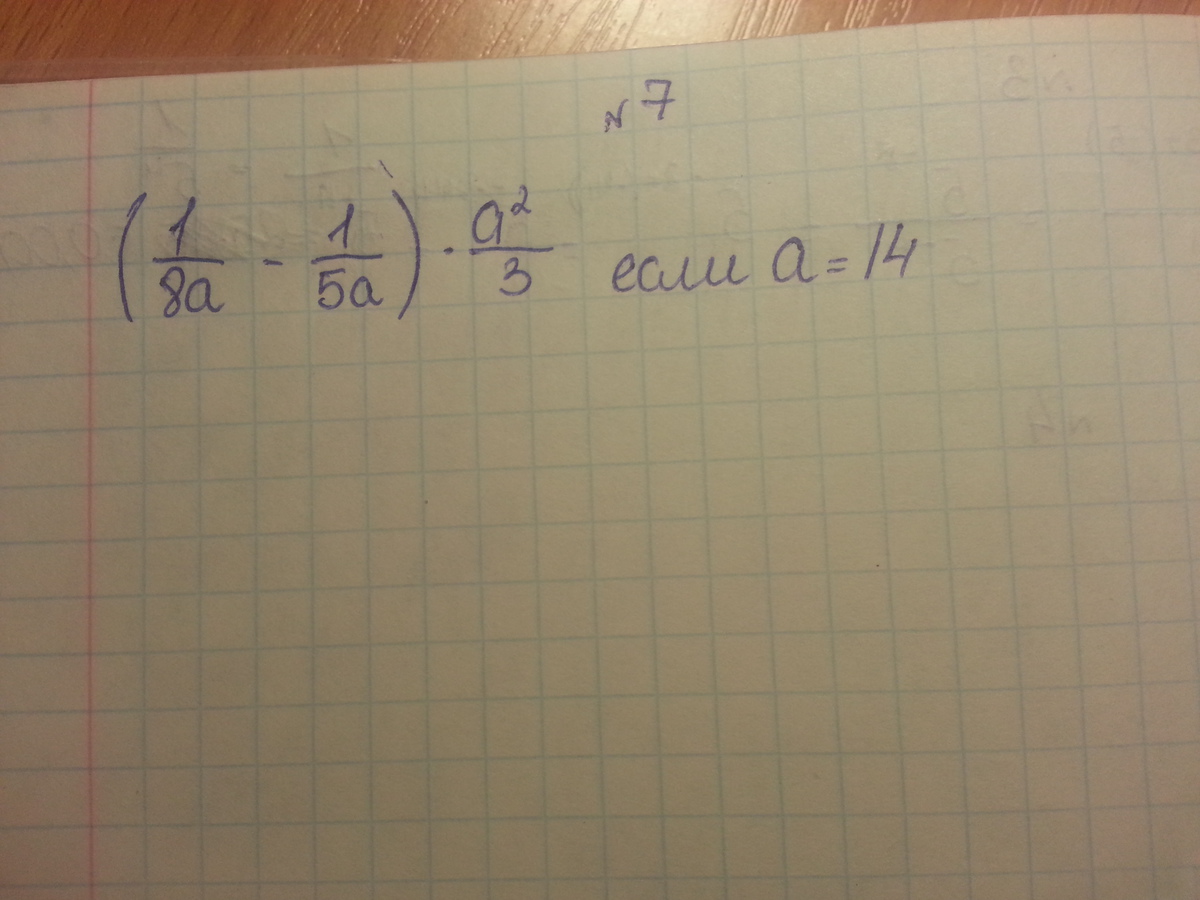 №7
(1/8a - 1/5a) · a²/3 если a = 14